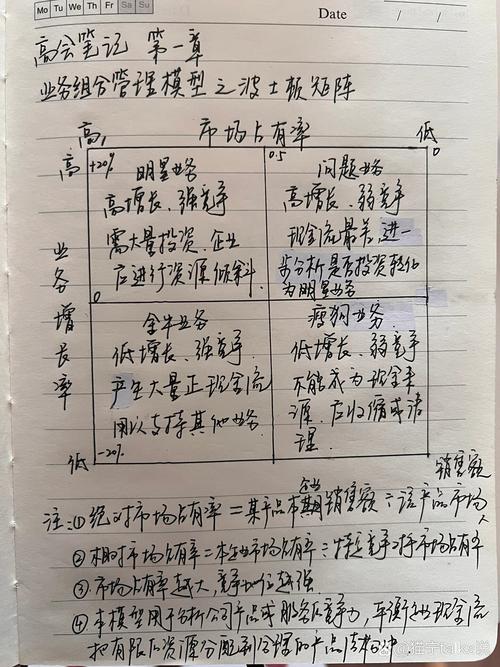 Mo Tu We Th Fr Sa Su
Date / /
高会笔记 第一章
业务组合管理模型之波士顿矩阵
高 1 市场占有率 低 0
高 +20% 0.5
明星业务
高增长、强竞争
需大量投资、企业
应进行资源倾斜
0
问题业务
高增长、弱竞争
现金流最差,进一
步分析是否投资转化
为明星业务
业务增长率
金牛业务
低增长、强竞争
产生大量正现金流
用以支持其他业务
瘦狗业务
低增长、弱竞争
不能成为现金来
源、应收缩或清
理.
低 -20%
注:①绝对市场占有率=某产品本企业期销售额÷该产品市场销售额
②相对市场占有率=本企业市场占有率÷特定竞争对手市场占有率
③市场占有率越大,竞争地位越强
④本模型用于分析公司产品或服务的竞争力,平衡企业现金流
把有限的资源分配到合理的产品结构中.